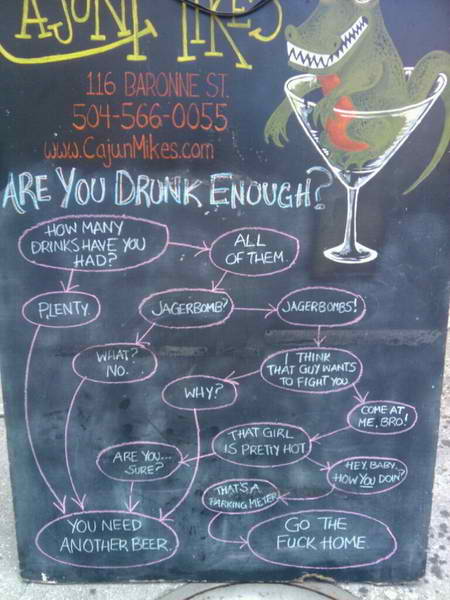 CAJUN MIKES
116 BARONNE ST.
504-566-0055
www.CajunMikes.com
ARE YOU DRUNK ENOUGH?
HOW MANY
DRINKS HAVE YOU
HAD?
ALL
OF THEM.
PLENTY.
JAGERBOMB?
JAGERBOMBS!
WHAT?
NO.
I THINK
THAT GUY WANTS
TO FIGHT YOU
WHY?
COME AT
ME, BRO!
THAT GIRL
IS PRETTY HOT
ARE YOU...
SURE?
HEY, BABY,
HOW YOU DOIN?
THAT'S A
PARKING METER
YOU NEED
ANOTHER BEER.
GO THE
FUCK HOME.